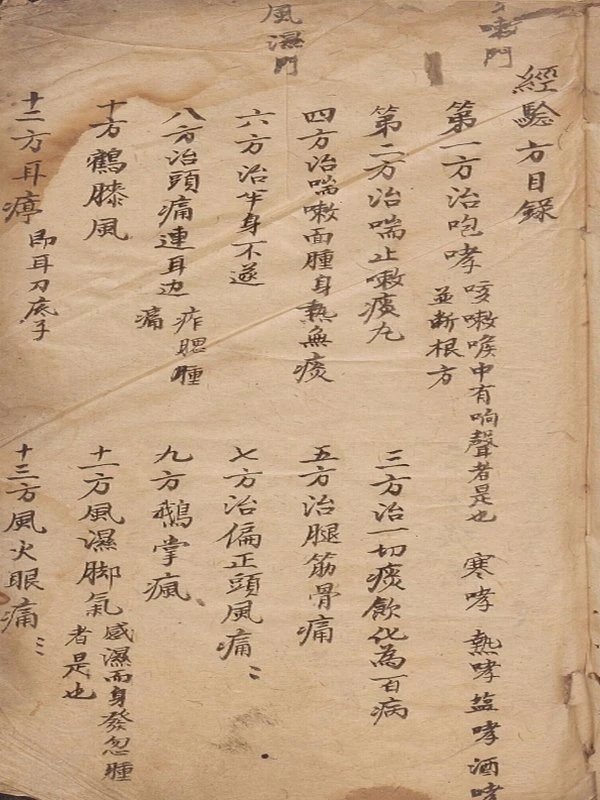 嗽門
經驗方目錄
第一方治咆哮 咳嗽喉中有响聲者是也 寒哮 熱哮 盐哮 酒哮
並断根方
第二方治喘止嗽痰丸
三方治一切痰飲化為百病
風濕門
四方治喘嗽面腫身熱無痰
五方治腿筋骨痛
六方治半身不遂
七方治偏正頭風痛
八方治頭痛連耳边 痄腮腫
痛
九方鵝掌瘋
十方鶴膝風
十一方風濕脚氣 感濕而身發忽腫
者是也
十二方耳 即耳刀底子
十三方風火眼痛